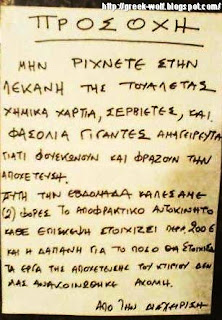 http://greek-wolf.blogspot.com/
ΠΡΟΣΟΧΗ
ΜΗΝ ΡΙΧΝΕΤΕ ΣΤΗΝ
ΛΕΚΑΝΗ ΤΗΣ ΤΟΥΑΛΕΤΑΣ
ΧΗΜΙΚΑ ΧΑΡΤΙΑ, ΣΕΡΒΙΕΤΕΣ, ΚΑΙ
ΦΑΣΟΛΙΑ ΓΙΓΑΝΤΕΣ ΑΜΑΓΕΙΡΕΥΤΑ
ΓΙΑΤΙ ΦΟΥΣΚΩΝΟΥΝ ΚΑΙ ΦΡΑΖΟΥΝ ΤΗΝ
ΑΠΟΧΕΤΕΥΣΗ.
ΑΥΤΗ ΤΗΝ ΕΒΔΟΜΑΔΑ ΚΑΛΕΣΑΜΕ
(2) ΦΟΡΕΣ ΤΟ ΑΠΟΦΡΑΚΤΙΚΟ ΑΥΤΟΚΙΝΗΤΟ
ΚΑΘΕ ΕΠΙΣΚΕΨΗ ΣΤΟΙΧΙΖΕΙ 200 €
ΚΑΙ Η ΔΑΠΑΝΗ ΓΙΑ ΤΟ ΠΟΣΟ ΘΑ ΣΤΟΙΧΙΣΟΥΝ
ΤΑ ΕΡΓΑ ΤΗΣ ΑΠΟΧΕΤΕΥΣΗΣ ΤΟΥ ΚΤΙΡΙΟΥ ΔΕΝ
ΜΑΣ ΑΝΑΚΟΙΝΩΘΗΚΕ ΑΚΟΜΗ.
ΑΠΟ ΤΗΝ ΔΙΑΧΕΙΡΙΣΗ